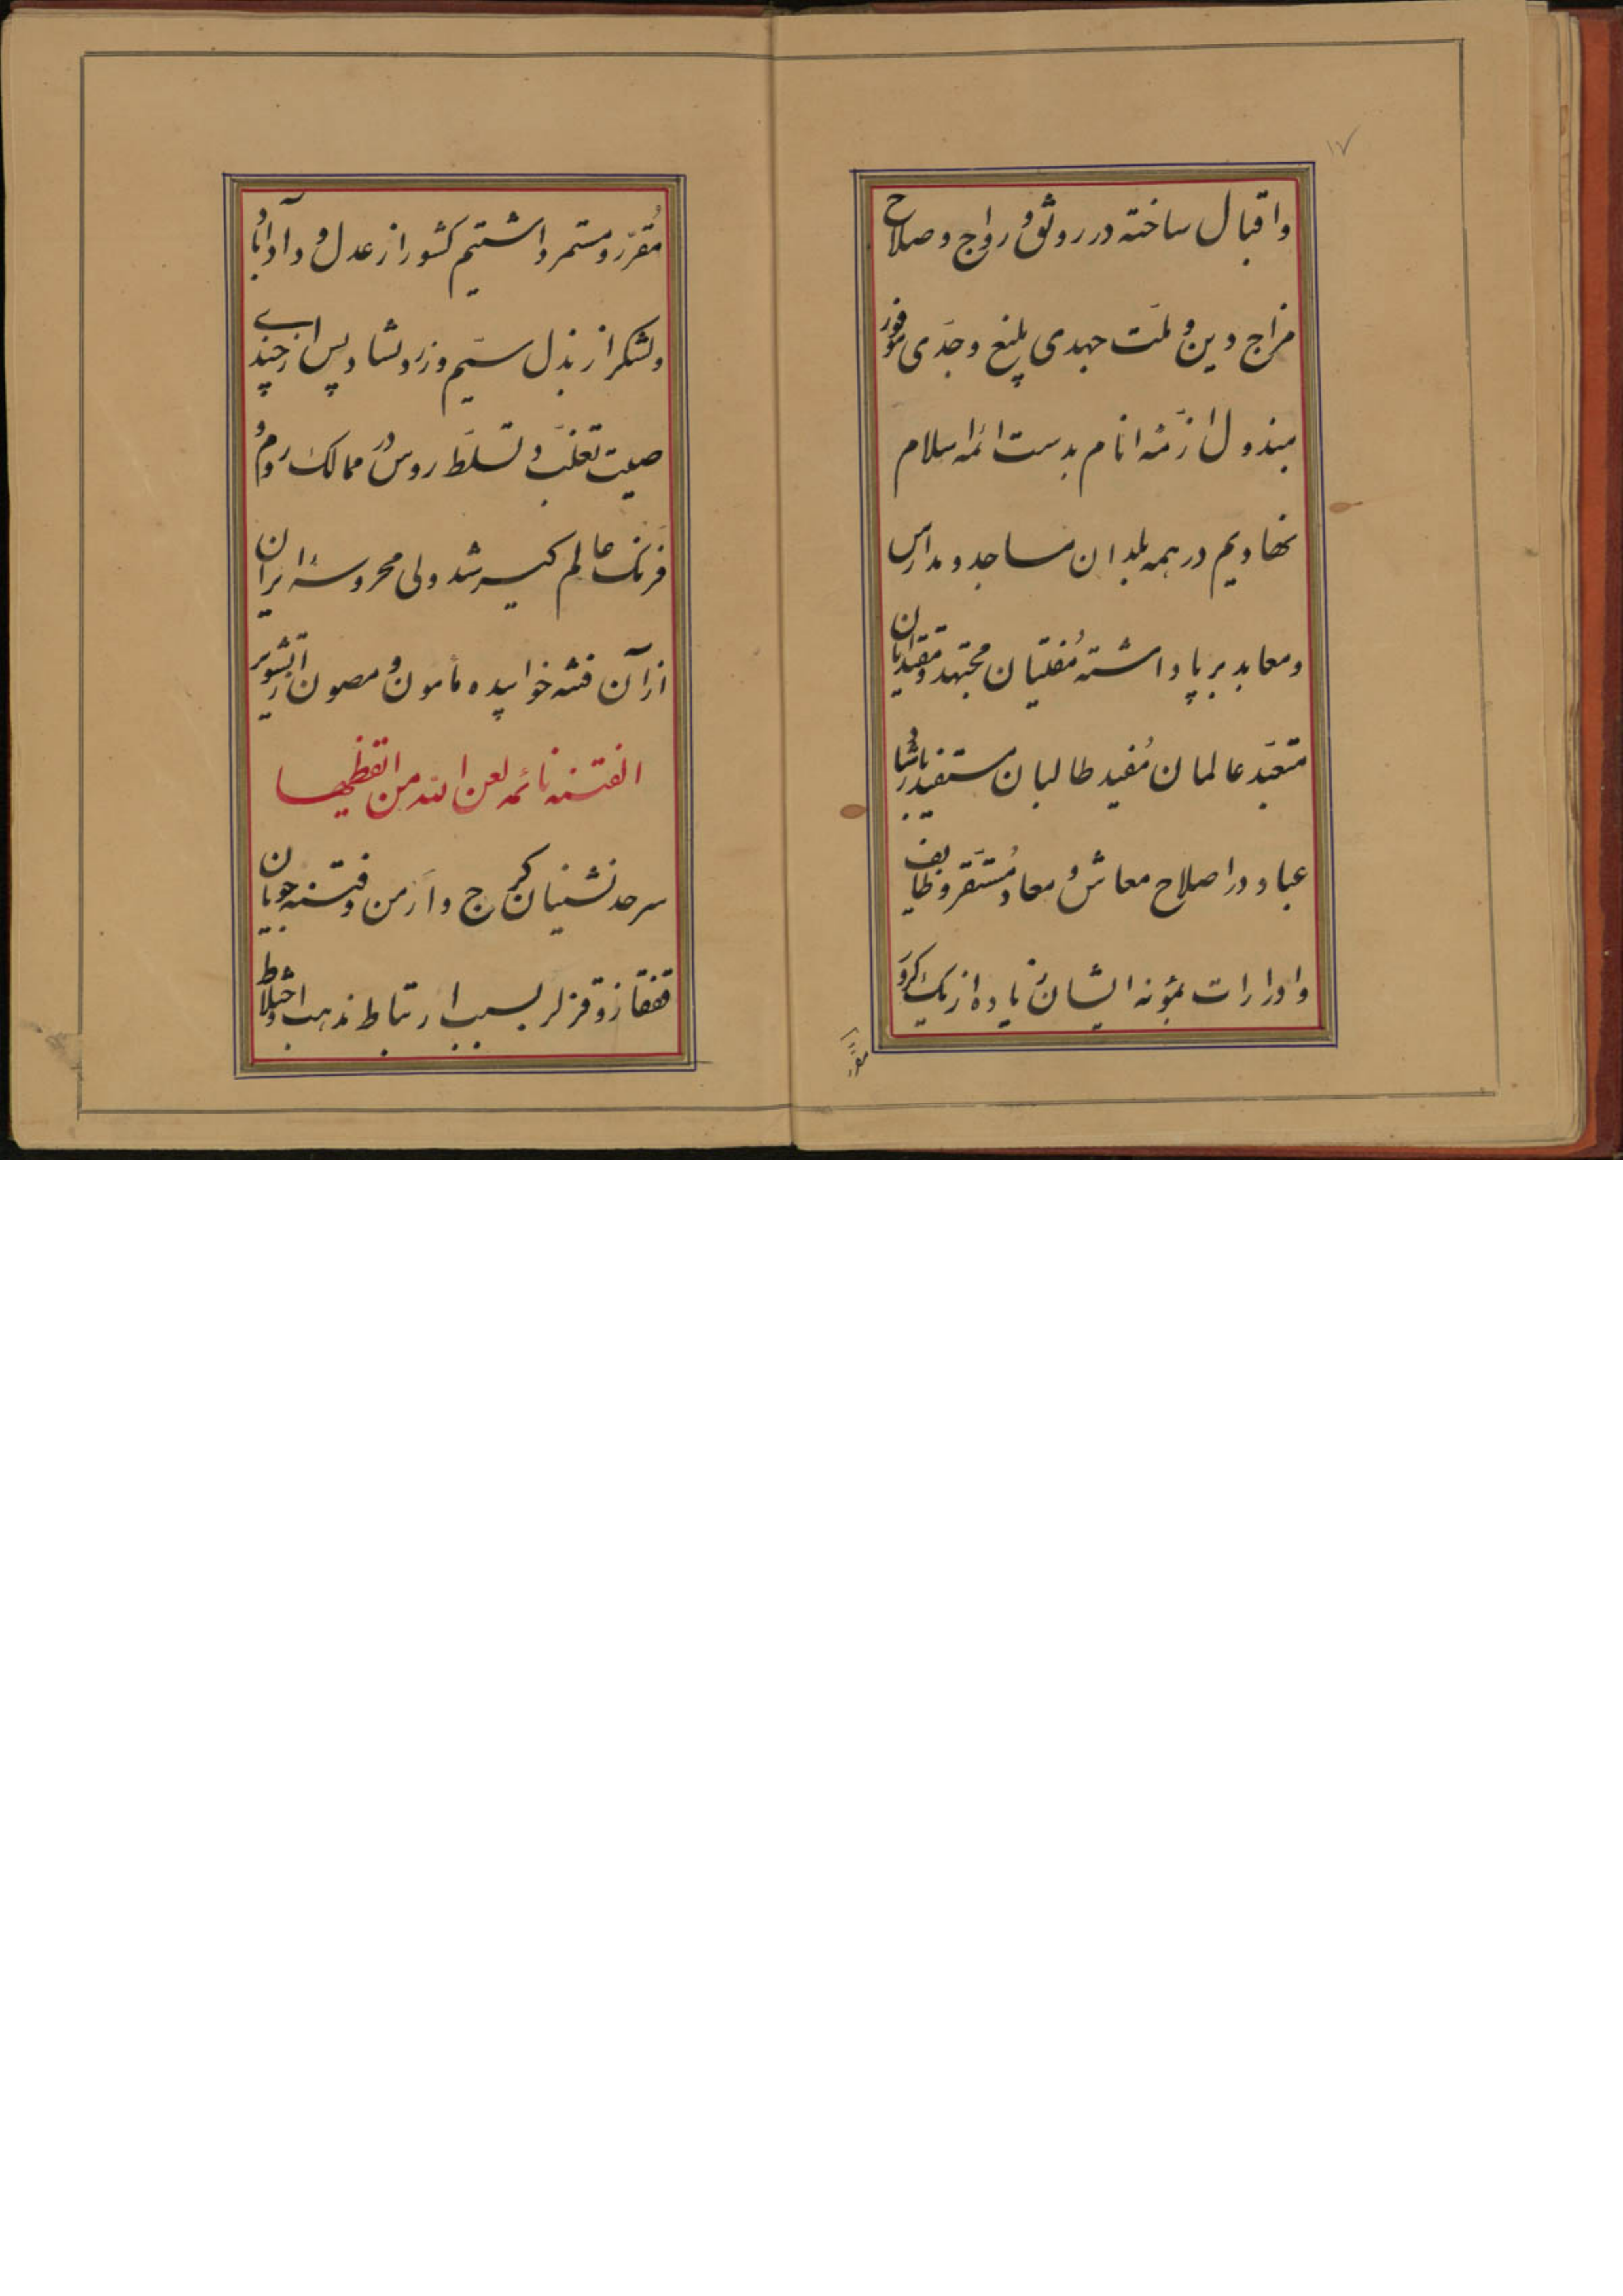 ۱۷
و اقبال ساخته در رونق و رواج و صلاح
مزاج دین و ملّت جهدی بلیغ و جدّی موفور
مبذول ازمّه انام بدست ائمه اسلام
نهادیم در همه بلدان مساجد و مدارس
و معابد بر پا داشته مُفتیان مجتهد و مقتدایان
متعبّد عالمان مُفید طالبان مستفید
عباد در اصلاح معاش و معاد مُستَقر وظایف
و ادرارات بمؤنه ایشان زیاده از یک کرور
مقرّر
مُقرّر و مستمر داشتیم کشور از عدل و داد آباد
و لشکر از بذل سیم و زر دلشاد پس از چندی
صیت تغلّب و تسلّط روس در ممالک روم و
فرنک عالم کیر شد ولی محروسه ایران
از آن فتنه خوابیده مأمون و مصون از تشویر
الفتنه نائمه لعن الله من ایقظها
سرحدنشینان کرج و ارمن و فتنه جویان
قفقاز و قزلر بسبب ارتباط مذهب و اختلاط